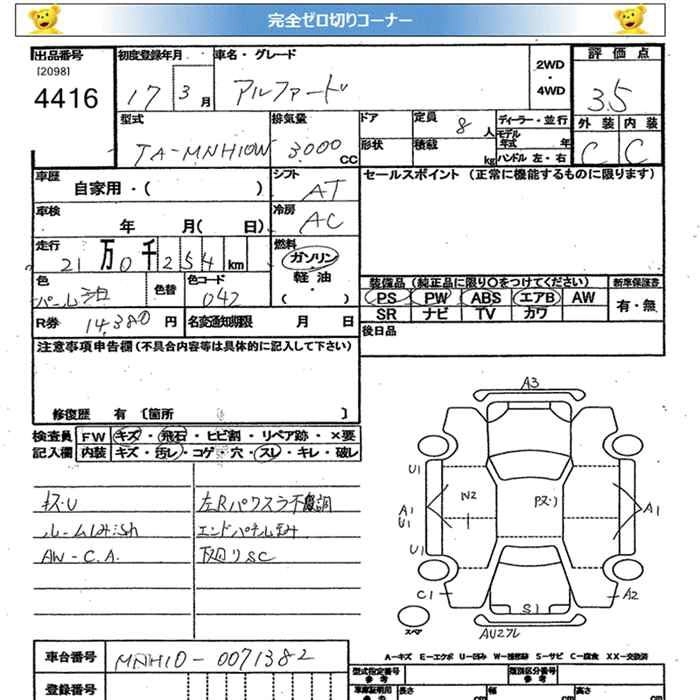 完全ゼロ切りコーナー
出品番号
[2098]
4416
初度登録年月
17 3月
車名・グレード
アルファード
2WD
・
4WD
評価点
3.5
型式
TA-MNH10W
排気量
3000 CC
ドア
形状
定員 8人
積載 kg
ディーラー・並行
モデル年式 年
ハンドル 左・右
外装 内装
C C
車歴
自家用・( )
シフト
AT
セールスポイント (正常に機能するものに限ります)
車検
年 月( 日)
冷房
AC
走行
21万0千254km
燃料
ガソリン
軽油・
( )
色
パール白
色替
色コード
042
装備品(純正品に限り○をつけてください)
新車保証書
PS PW ABS エアB AW
有・無
SR ナビ TV カワ
R券 14,380円
名変通知期限 月 日
後日品
注意事項申告欄(不具合内容等は具体的に記入して下さい)
修復歴 有 [箇所 ]
検査員
記入欄
FW キズ・飛石・ヒビ割・リペア跡・×要
内装 キズ・汚レ・コゲ・穴・スレ・キレ・破レ
キズ・U
左Rパワスラ不調
ルームしみ
エンドパネル歪み
AW-C.A.
下廻りSC
A3
U1
A1
U1
U1
C1
W2
A1
A2
S1
AU27L
スペア
A-キズ E-エクボ U-凹み W-補修跡 S-サビ C-腐食 XX-交換済
車台番号
MNH10-0071382
登録番号
型式指定番号
参考
類別区分番号
参考
車庫証明用
参考
長さ cm
幅 cm
高さ cm